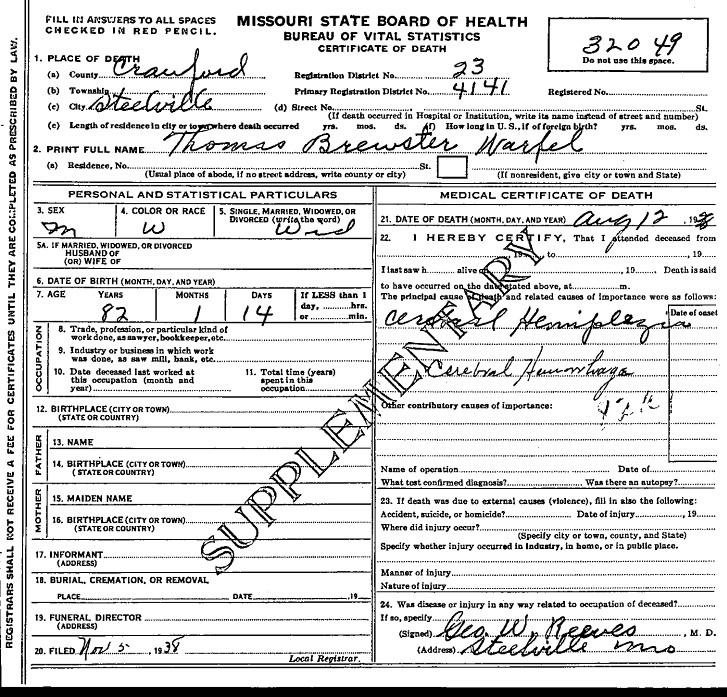 FILL IN ANSWERS TO ALL SPACES
CHECKED IN RED PENCIL.
MISSOURI STATE BOARD OF HEALTH
BUREAU OF VITAL STATISTICS
CERTIFICATE OF DEATH
32049
Do not use this space.
1. PLACE OF DEATH
(a) County Crawford
Registration District No. 23
(b) Township
Primary Registration District No. 4141
Registered No.
(c) City Steelville
(d) Street No. St.
(If death occurred in Hospital or Institution, write its name instead of street and number)
(e) Length of residence in city or town where death occurred yrs. mos. ds. (f) How long in U. S., if of foreign birth? yrs. mos. ds.
2. PRINT FULL NAME Thomas Brewster Warfel
(a) Residence, No. St.
(Usual place of abode, if no street address, write county or city)
(If nonresident, give city or town and State)
PERSONAL AND STATISTICAL PARTICULARS
3. SEX
m
4. COLOR OR RACE
W
5. SINGLE, MARRIED, WIDOWED, OR DIVORCED (write the word)
Wid
5A. IF MARRIED, WIDOWED, OR DIVORCED
HUSBAND OF
(OR) WIFE OF
6. DATE OF BIRTH (MONTH, DAY, AND YEAR)
7. AGE YEARS MONTHS DAYS If LESS than 1
day, hrs.
or min.
82 1 14
OCCUPATION
8. Trade, profession, or particular kind of
work done, as sawyer, bookkeeper, etc.
9. Industry or business in which work
was done, as saw mill, bank, etc.
10. Date deceased last worked at
this occupation (month and
year)
11. Total time (years)
spent in this
occupation
12. BIRTHPLACE (CITY OR TOWN)
(STATE OR COUNTRY)
FATHER
13. NAME
14. BIRTHPLACE (CITY OR TOWN)
(STATE OR COUNTRY)
MOTHER
15. MAIDEN NAME
16. BIRTHPLACE (CITY OR TOWN)
(STATE OR COUNTRY)
17. INFORMANT
(ADDRESS)
18. BURIAL, CREMATION, OR REMOVAL
PLACE DATE , 19
19. FUNERAL DIRECTOR
(ADDRESS)
20. FILED Nov 5 , 1938
Local Registrar.
MEDICAL CERTIFICATE OF DEATH
21. DATE OF DEATH (MONTH, DAY, AND YEAR) Aug 12 , 1938
22. I HEREBY CERTIFY, That I attended deceased from
, 19 , to , 19
I last saw h alive on , 19 Death is said
to have occurred on the date stated above, at m.
The principal cause of death and related causes of importance were as follows:
Date of onset
Cerebral Hemiplegia
Cerebral Hemorrhage
Other contributory causes of importance:
Name of operation Date of
What test confirmed diagnosis? Was there an autopsy?
23. If death was due to external causes (violence), fill in also the following:
Accident, suicide, or homicide? Date of injury , 19
Where did injury occur?
(Specify city or town, county, and State)
Specify whether injury occurred in industry, in home, or in public place.
Manner of injury
Nature of injury
24. Was disease or injury in any way related to occupation of deceased?
If so, specify
(Signed) Geo. W. Reeves , M. D.
(Address) Steelville Mo
SUPPLEMENTARY
REGISTRARS SHALL NOT RECEIVE A FEE FOR CERTIFICATES UNTIL THEY ARE COMPLETED AS PRESCRIBED BY LAW.